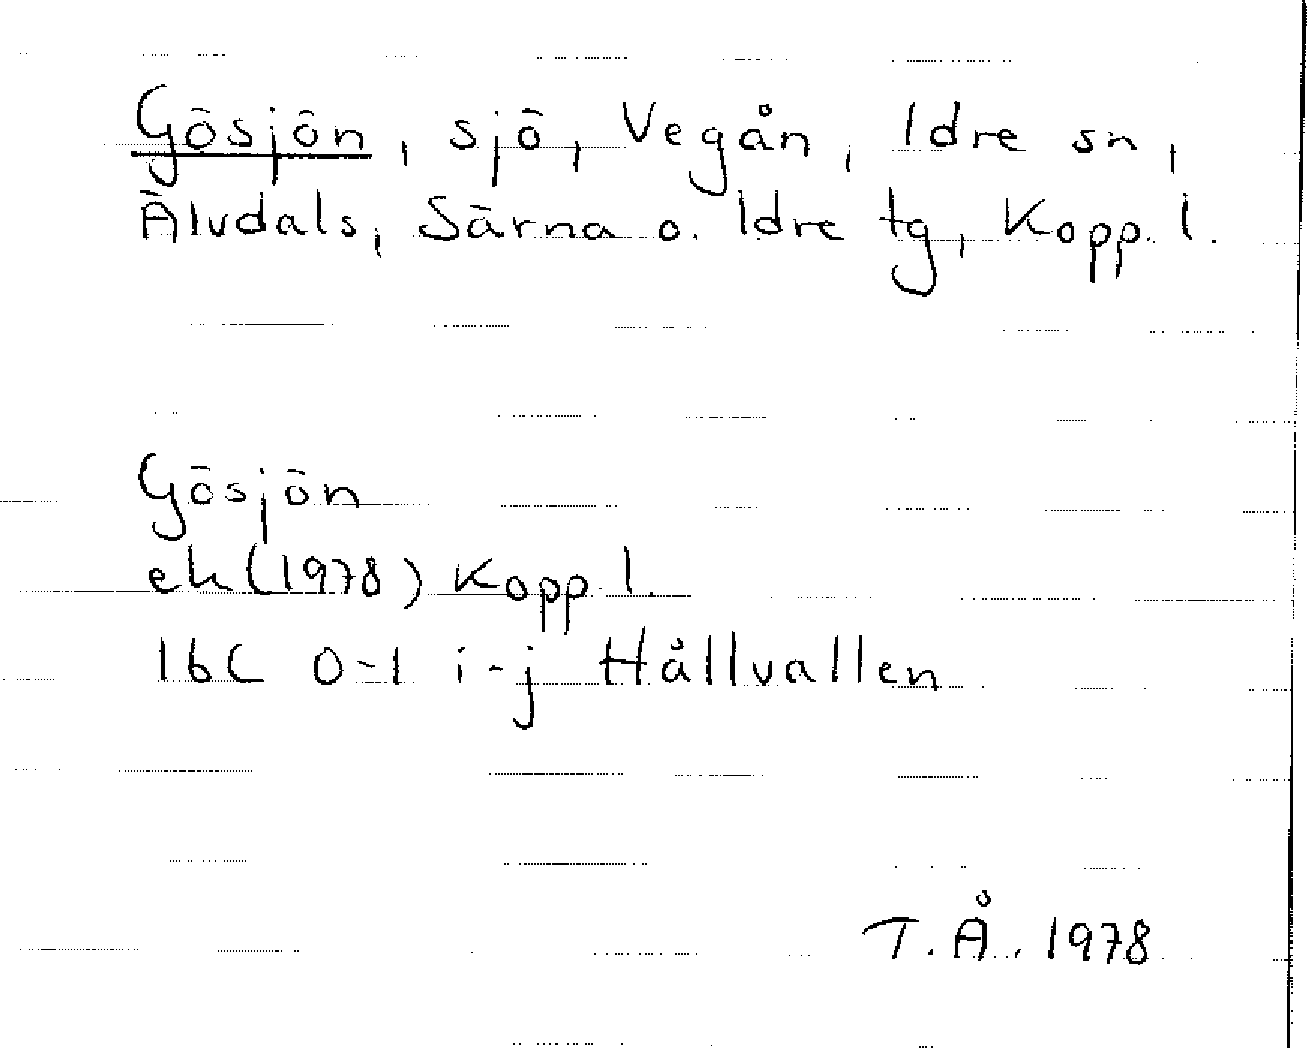 Gösjön, sjö, Vegån, Idre sn,
Älvdals, Särna o. Idre tg, Kopp. l.
Gösjön
ek (1978) Kopp. l.
16C 0-1 i-j Hållvallen
T.Å. 1978